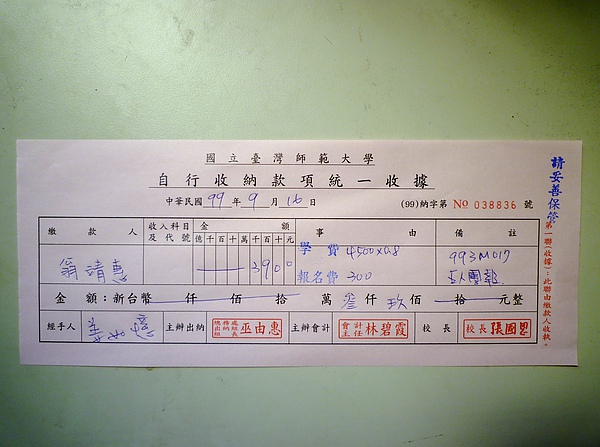 國立臺灣師範大學
自行收納款項統一收據
中華民國 99 年 9 月 16 日
(99)納字第 No 038836 號
請妥善保管
第一聯(收據):此聯由繳款人收執。
繳款人 收入科目及代號 金額 事由 備註
億 千 百 十 萬 千 百 十 元
翁靖惠 3900 學費 4500x0.8 993M017
報名費 300 五人團報
金額:新台幣 仟 佰 拾 萬 叁 仟 玖 佰 拾 元整
經手人 主辦出納 總務處出納組組長 巫由惠 主辦會計 會計主任 林碧霞 校長 校長 張國恩